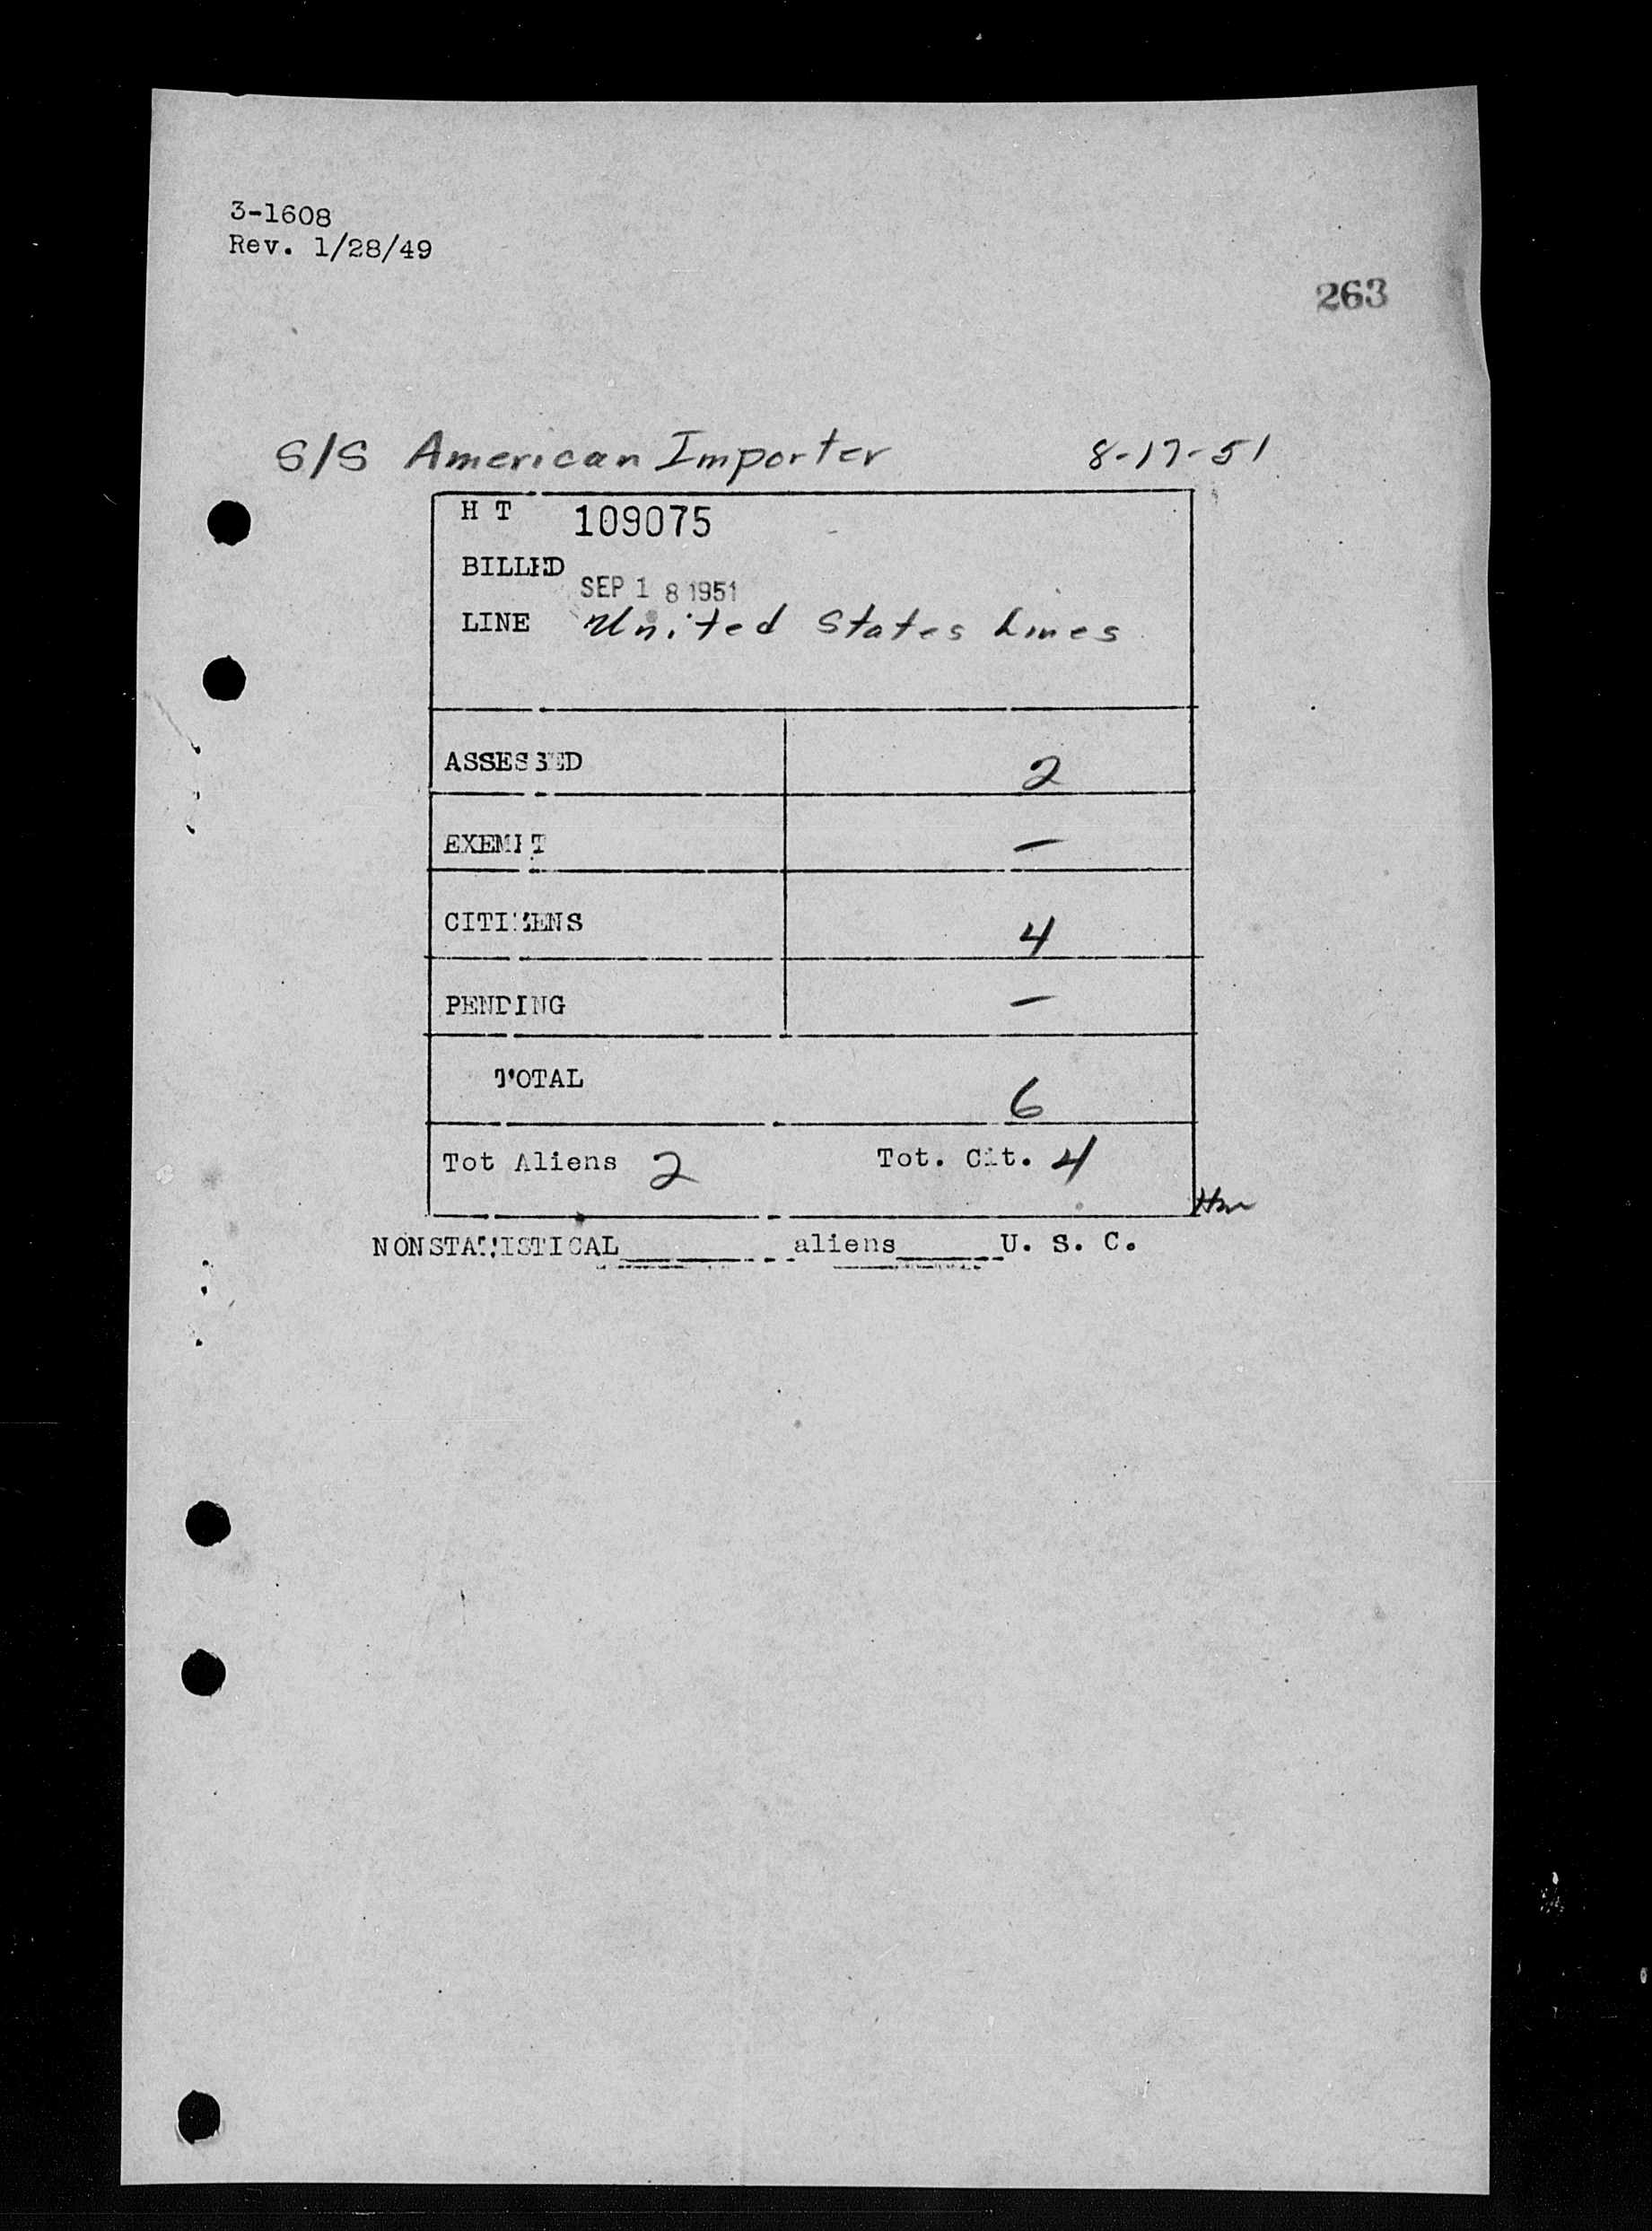 3-1608
Rev. 1/28/49
263
S/S American Importer 8-17-51
H T 109075
BILLED
SEP 18 1951
LINE United States Lines
ASSESSED 2
EXEMPT —
CITIZENS 4
PENDING —
TOTAL 6
Tot Aliens 2 Tot. Cit. 4
NONSTATISTICAL ______ aliens ______ U. S. C.